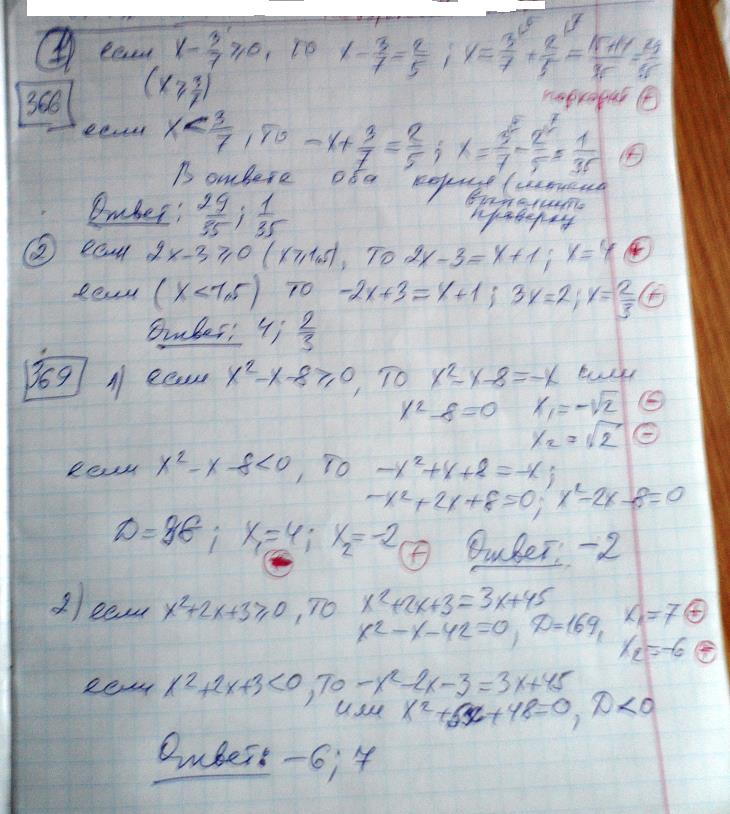 1) если x - 3/7 ≥ 0, то x - 3/7 = 2/5; x = 3/7 + 2/5 = 15+14/35 = 29/35
(x ≥ 3/7)
366
подходит +
если x < 3/7, то -x + 3/7 = 2/5; x = 3/7 - 2/5 = 1/35 +
В ответе оба корня (можно
выполнить
проверку
Ответ: 29/35; 1/35
2 если 2x-3 ≥ 0 (x ≥ 1,5), то 2x-3 = x+1; x = 4 +
если (x < 1,5) то -2x+3 = x+1; 3x = 2; x = 2/3 +
Ответ: 4; 2/3
369 1) если x²-x-8 ≥ 0, то x²-x-8 = -x или
x²-8 = 0 x₁ = -√2 -
x₂ = √2 -
если x²-x-8 < 0, то -x²+x+8 = -x;
-x²+2x+8 = 0; x²-2x-8 = 0
D = 36; x₁ = 4; x₂ = -2 + Ответ: -2
2) если x²+2x+3 ≥ 0, то x²+2x+3 = 3x+45
x²-x-42 = 0, D = 169, x₁ = 7 +
x₂ = -6 +
если x²+2x+3 < 0, то -x²-2x-3 = 3x+45
или x²+5x+48 = 0, D < 0
Ответ: -6; 7